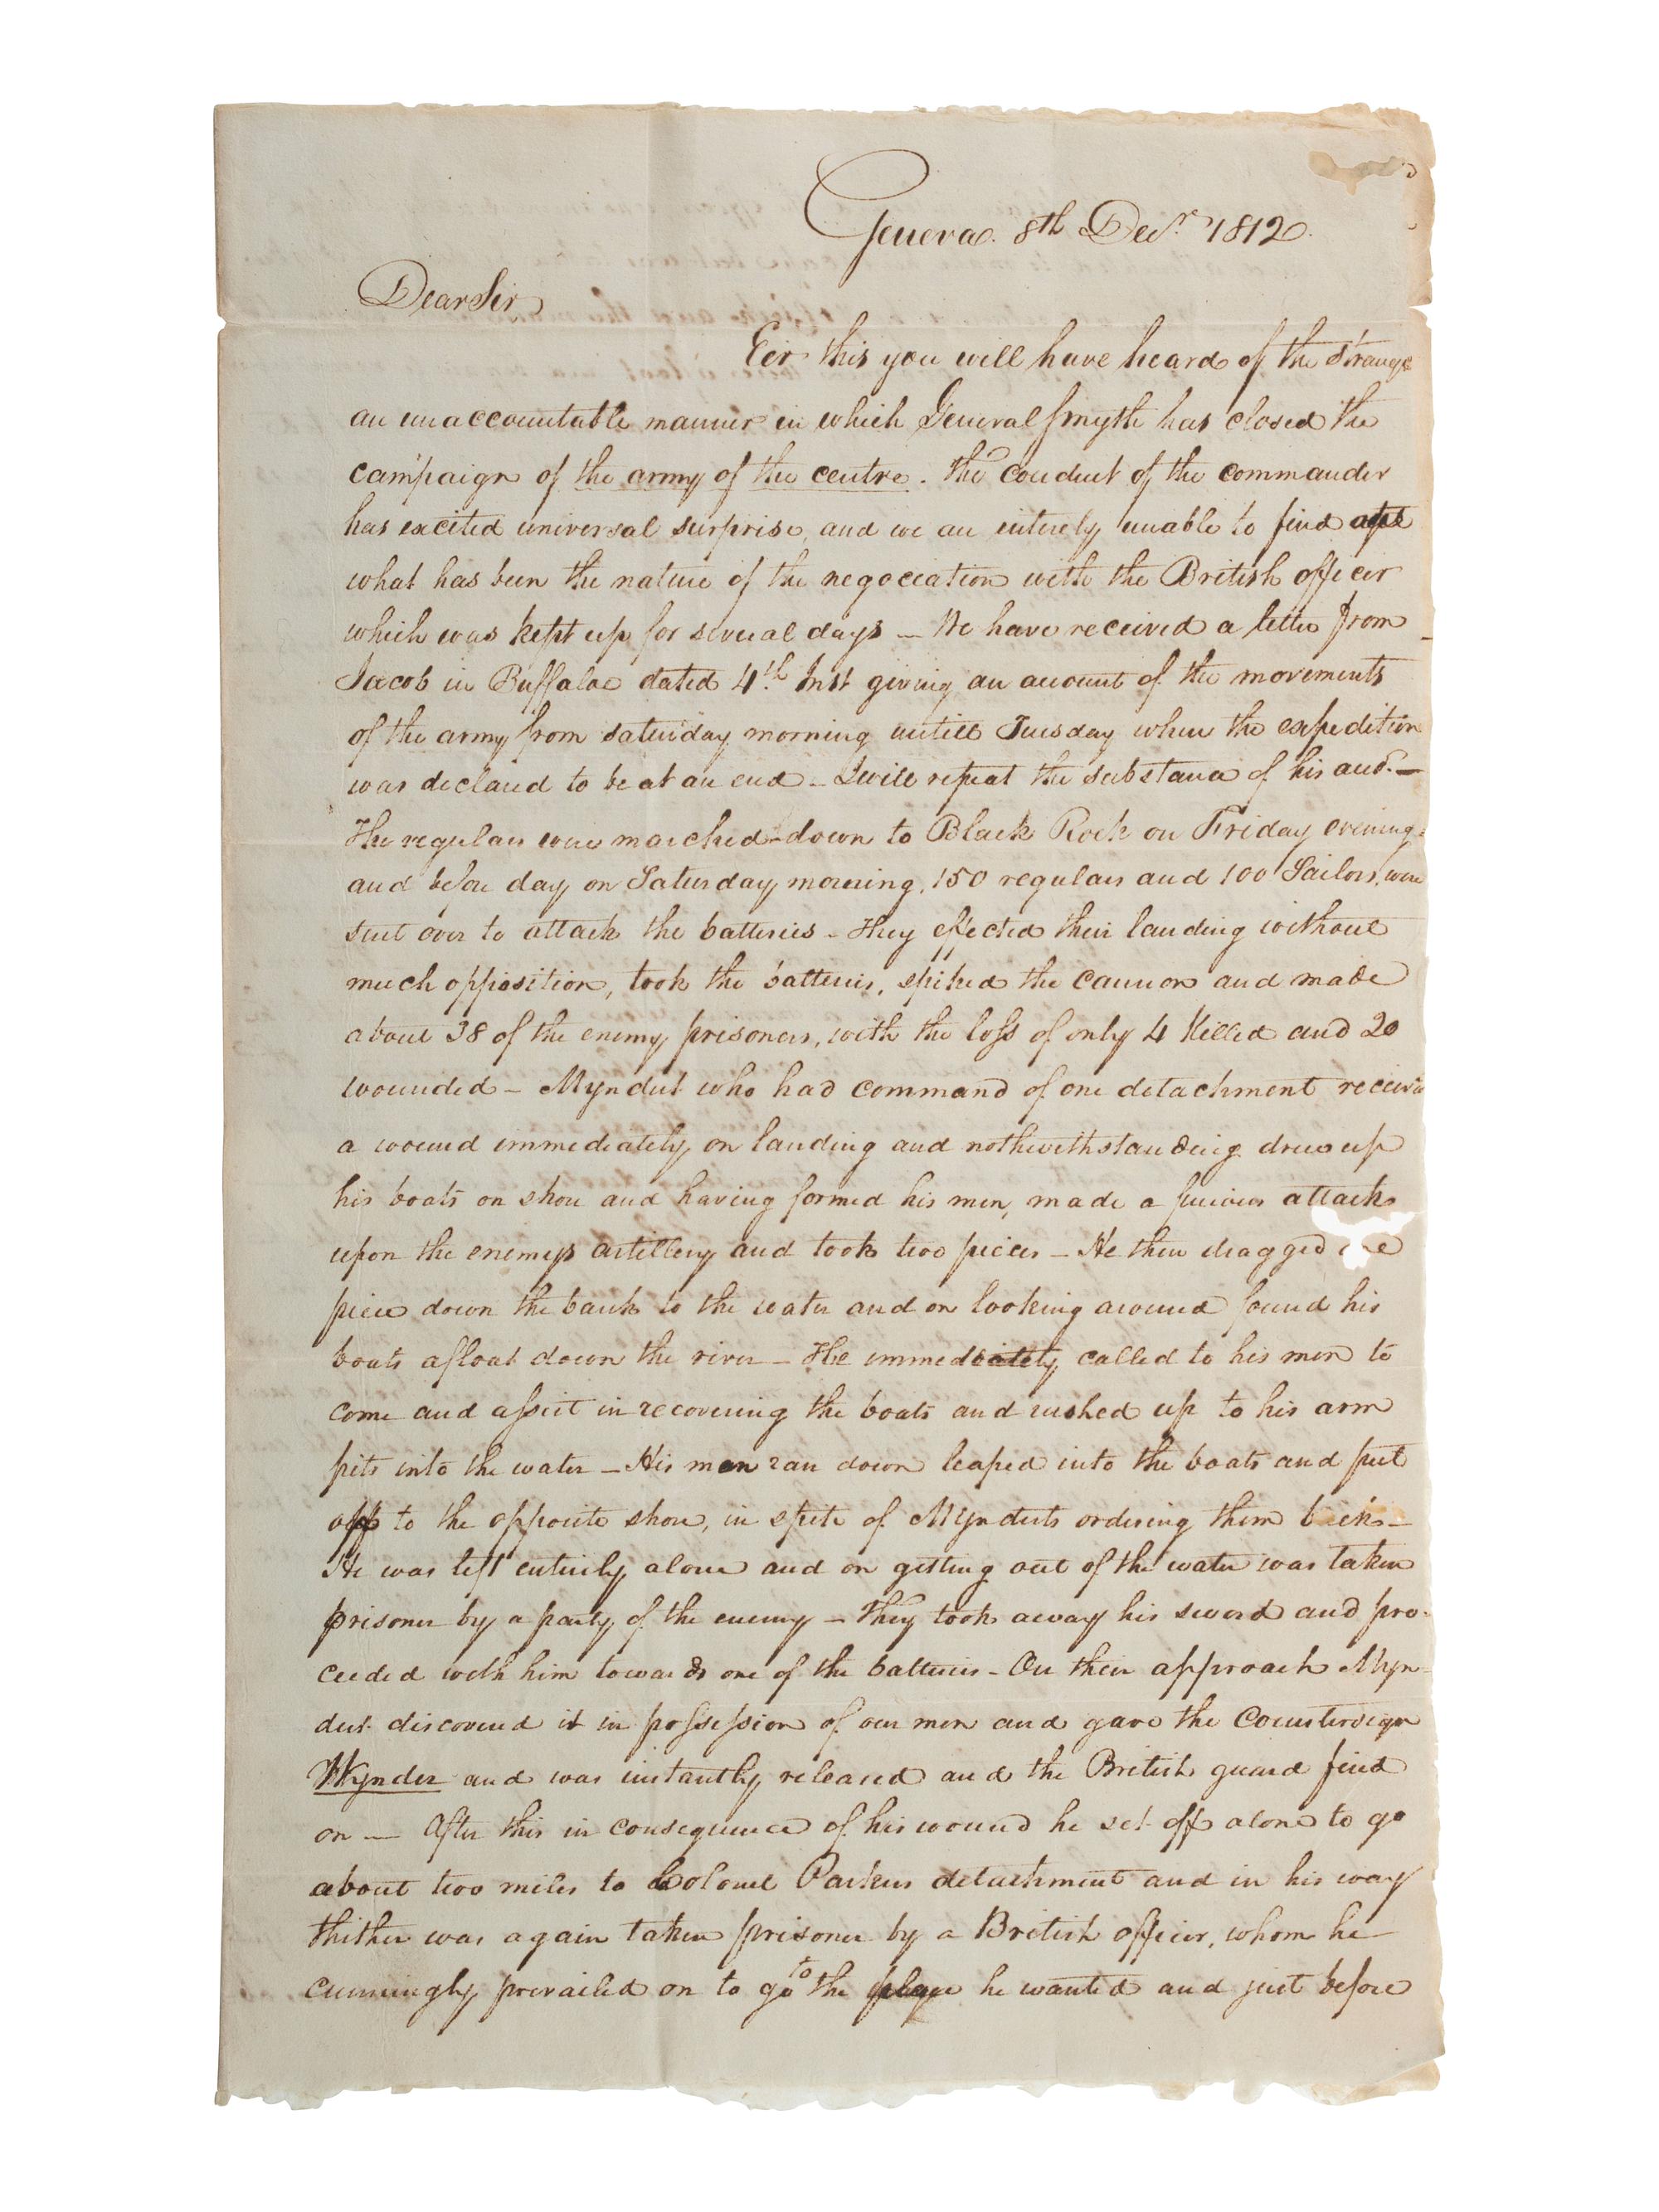 Geneva. 8th Decr. 1812.
Dear Sir
Eer this you will have heard of the strange
an unaccountable manner in which General Smyth has closed the
campaign of the army of the centre. The conduct of the commander
has excited universal surprise, and we are entirely unable to find
what has been the nature of the negociation with the British officer
which was kept up for several days — We have received a letter from
Jacob in Buffaloe dated 4th. Inst giving an account of the movements
of the army from saturday morning untill Tuesday when the expedition
was declared to be at an end — I will repeat the substance of his acct. —
The regulars were marched down to Black Rock on Friday evening
and before day on Saturday morning, 150 regulars and 100 Sailors, were
sent over to attack the batteries — They effected their landing without
much opposition, took the batteries, spiked the cannon and made
about 38 of the enemy prisoners, with the loss of only 4 killed and 20
wounded — Myndert who had command of one detachment receivd
a wound immediately on landing and nothwithstanding drew up
his boats on shore and having formed his men, made a furious attack
upon the enemys artillery and took two pieces — He then dragged one
piece down the bank to the water and on looking around found his
boats afloat down the river — He immediately called to his men to
come and assist in recovering the boats and rushed up to his arm
pits into the water — His men ran down leaped into the boats and put
off to the opposite shore, in spite of Mynderts ordering them back —
He was left entirely alone and on getting out of the water was taken
prisoner by a party of the enemy — They took away his sword and pro-
ceeded with him towards one of the batteries — On their approach Myn-
dert discovered it in possession of our men and gave the Countersign
Wynder and was instantly released and the British guard fired
on — After this in consequence of his wound he set off alone to go
about two miles to Colonel Parkers detachment and in his way
thither was again taken prisoner by a British officer, whom he
cunningly prevailed on to go to the place he wanted and just before